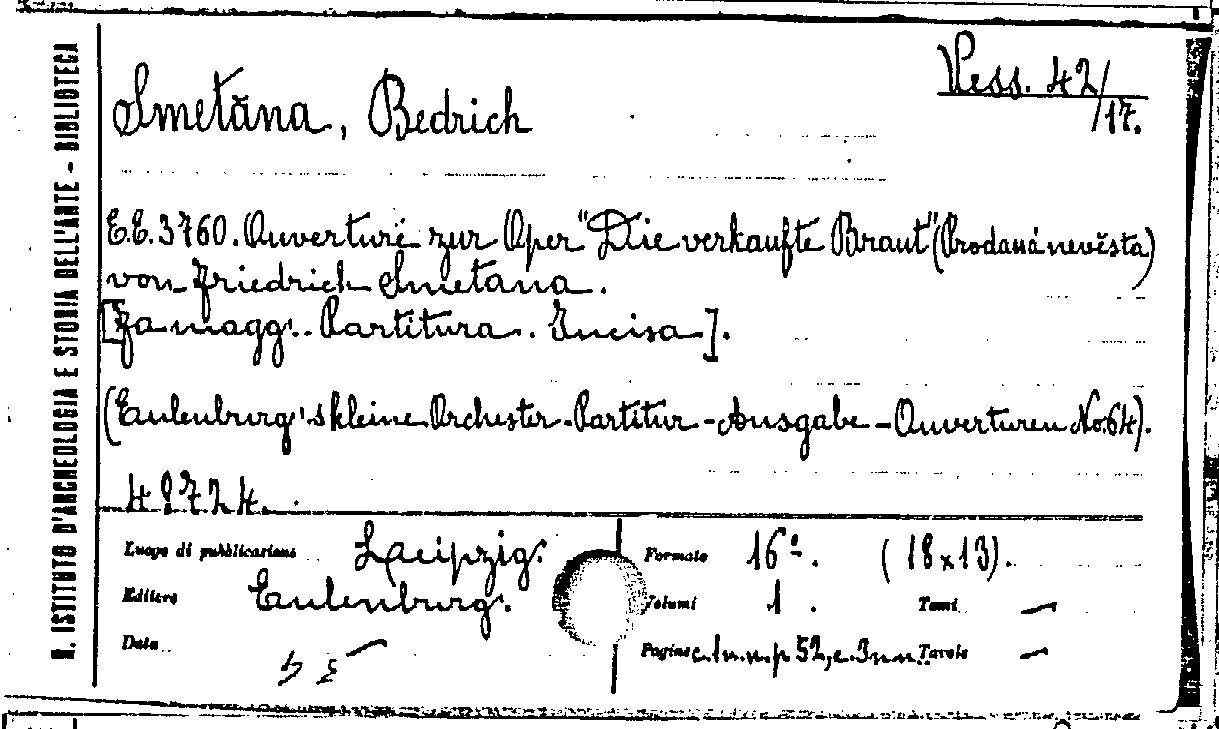 R. ISTITUTO D'ARCHEOLOGIA E STORIA DELL'ARTE - BIBLIOTECA
Vess. 42/17.
Smetana, Bedrich
E.E. 3760. Ouverture zur Oper "Die verkaufte Braut" (Prodaná nevěsta)
von Friedrich Smetana.
[Fa magg. Partitura. Incisa].
(Eulenburg's kleine Orchester-Partitur-Ausgabe - Ouverturen No. 64).
Luogo di pubblicazione Leipzig.
Editore Eulenburg.
Data —
Formato 16º. (18x13).
Volumi 1. Tomi —
Pagine c. 1 n.n. p 52, c. 3 n.n. Tavole —